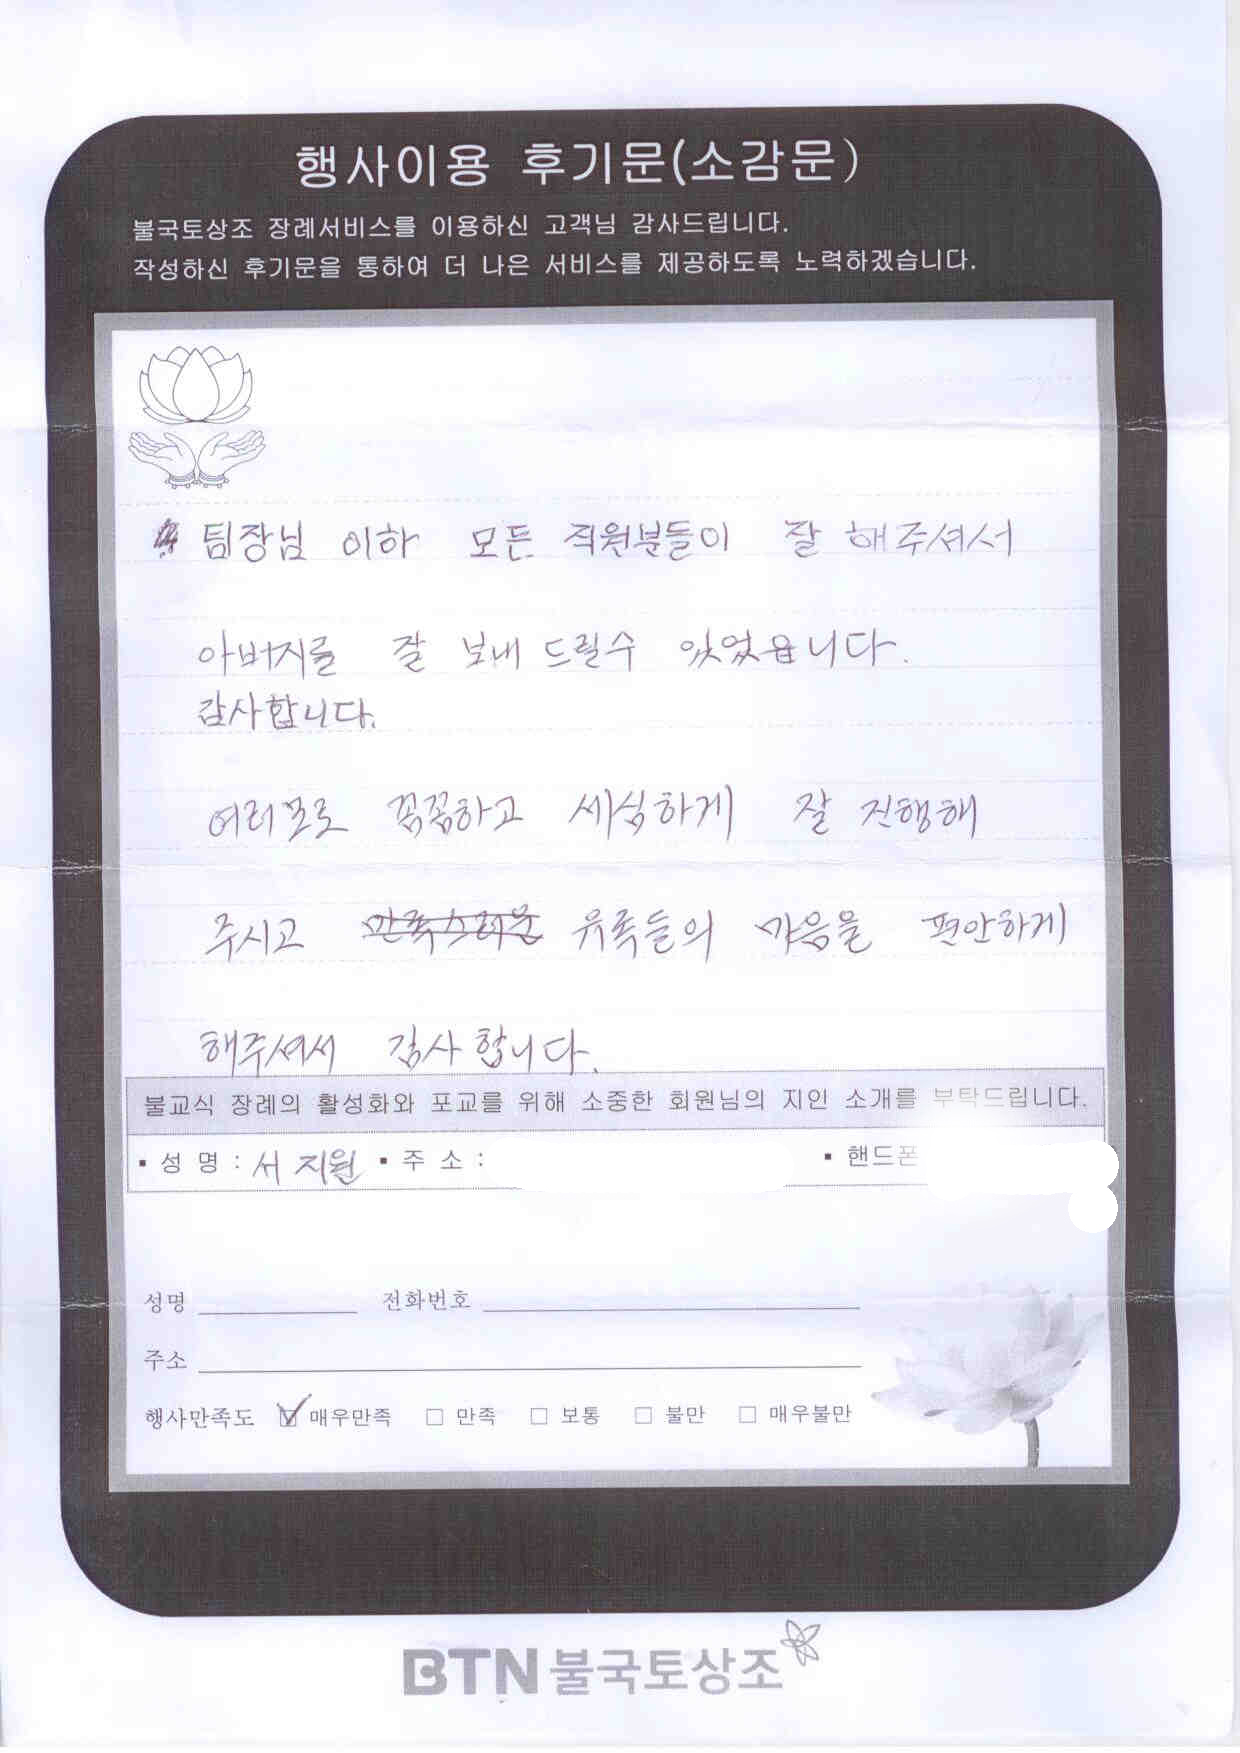 행사이용 후기문(소감문)
불국토상조 장례서비스를 이용하신 고객님 감사드립니다.
작성하신 후기문을 통하여 더 나은 서비스를 제공하도록 노력하겠습니다.
팀장님 이하 모든 직원분들이 잘 해주셔서
아버지를 잘 보내 드릴수 있었읍니다.
감사합니다.
여러모로 꼼꼼하고 세심하게 잘 진행해
주시고 만족스러운 유족들의 마음을 편안하게
해주셔서 감사합니다.
불교식 장례의 활성화와 포교를 위해 소중한 회원님의 지인 소개를 부탁드립니다.
▪ 성 명 : 서지원 ▪ 주 소 : ▪ 핸드폰
성명 전화번호
주소
행사만족도 ☑ 매우만족 □ 만족 □ 보통 □ 불만 □ 매우불만
BTN불국토상조